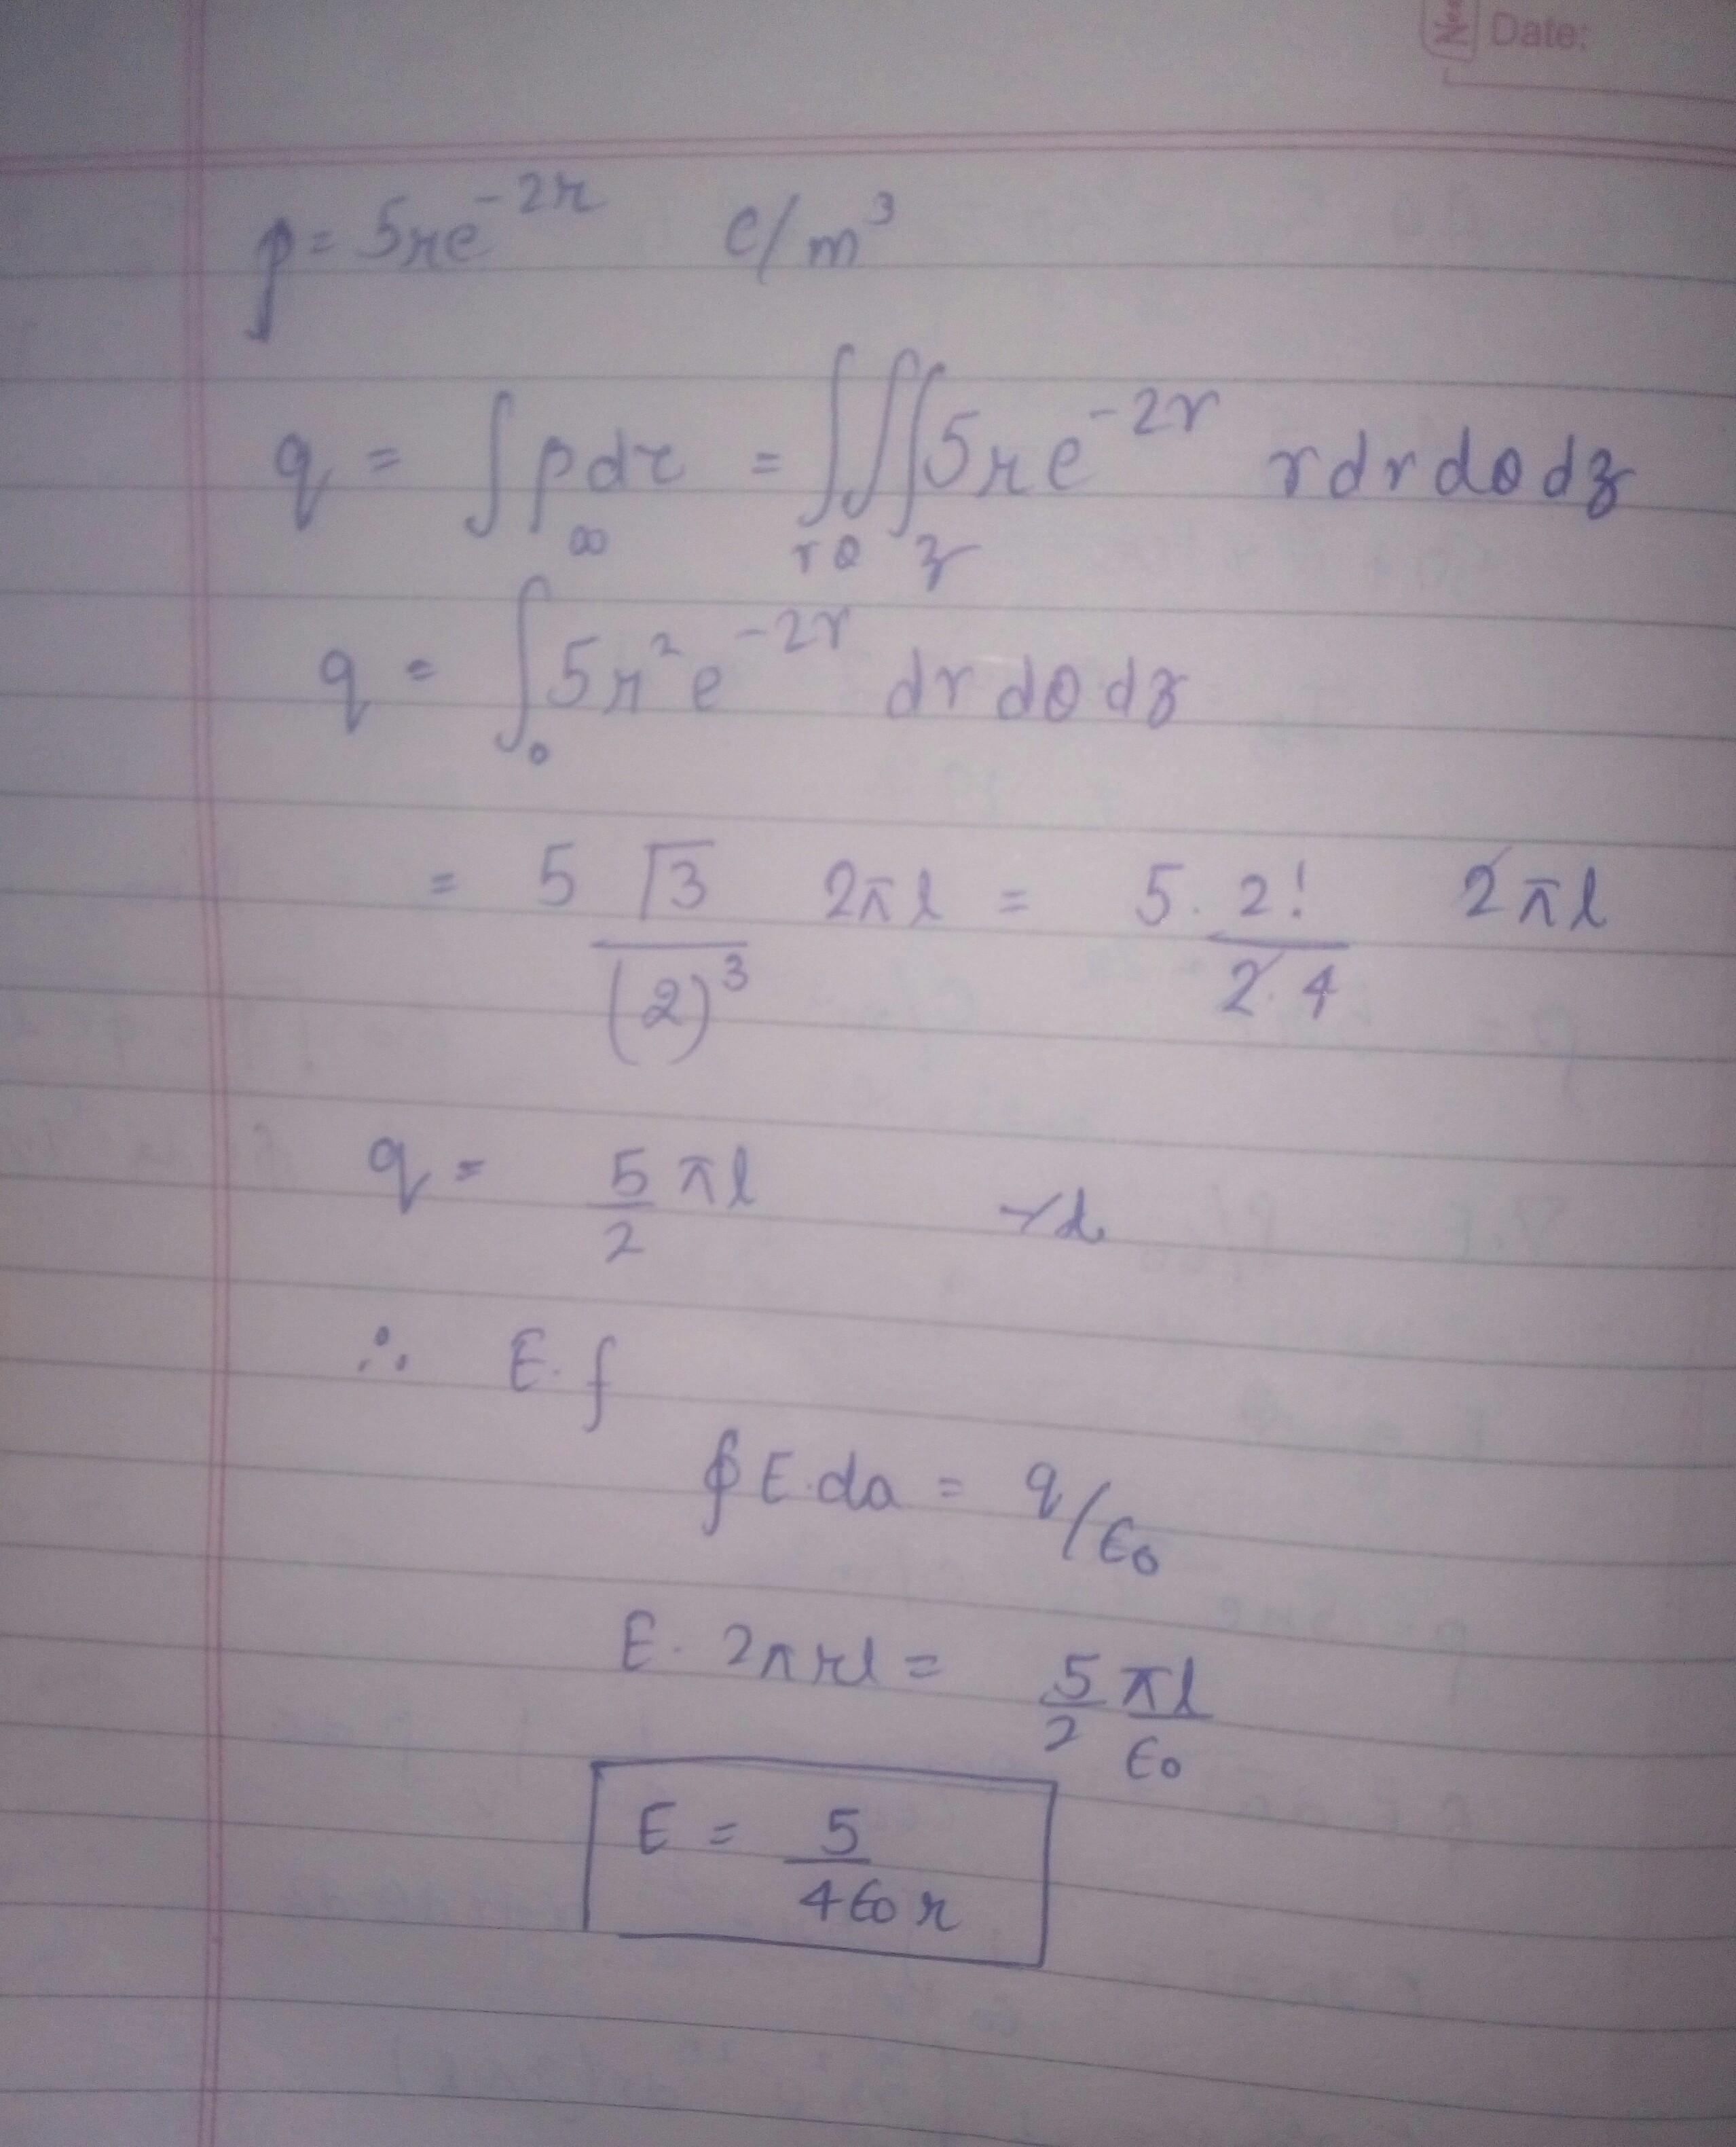 Date:
ρ = 5re^{-2r} C/m^3
q = ∫ρdτ = ∫∫∫ 5re^{-2r} r dr dθ dz
∞ r θ z
q = ∫_0 5r^2 e^{-2r} dr dθ dz
= 5 Γ3/(2)^3 2πl = 5. 2!/2.4 2πl
q = 5/2 πl
∴ E. f
∮E.da = q/ε0
E. 2πrl = 5/2 πl/ε0
E = 5/4ε0r